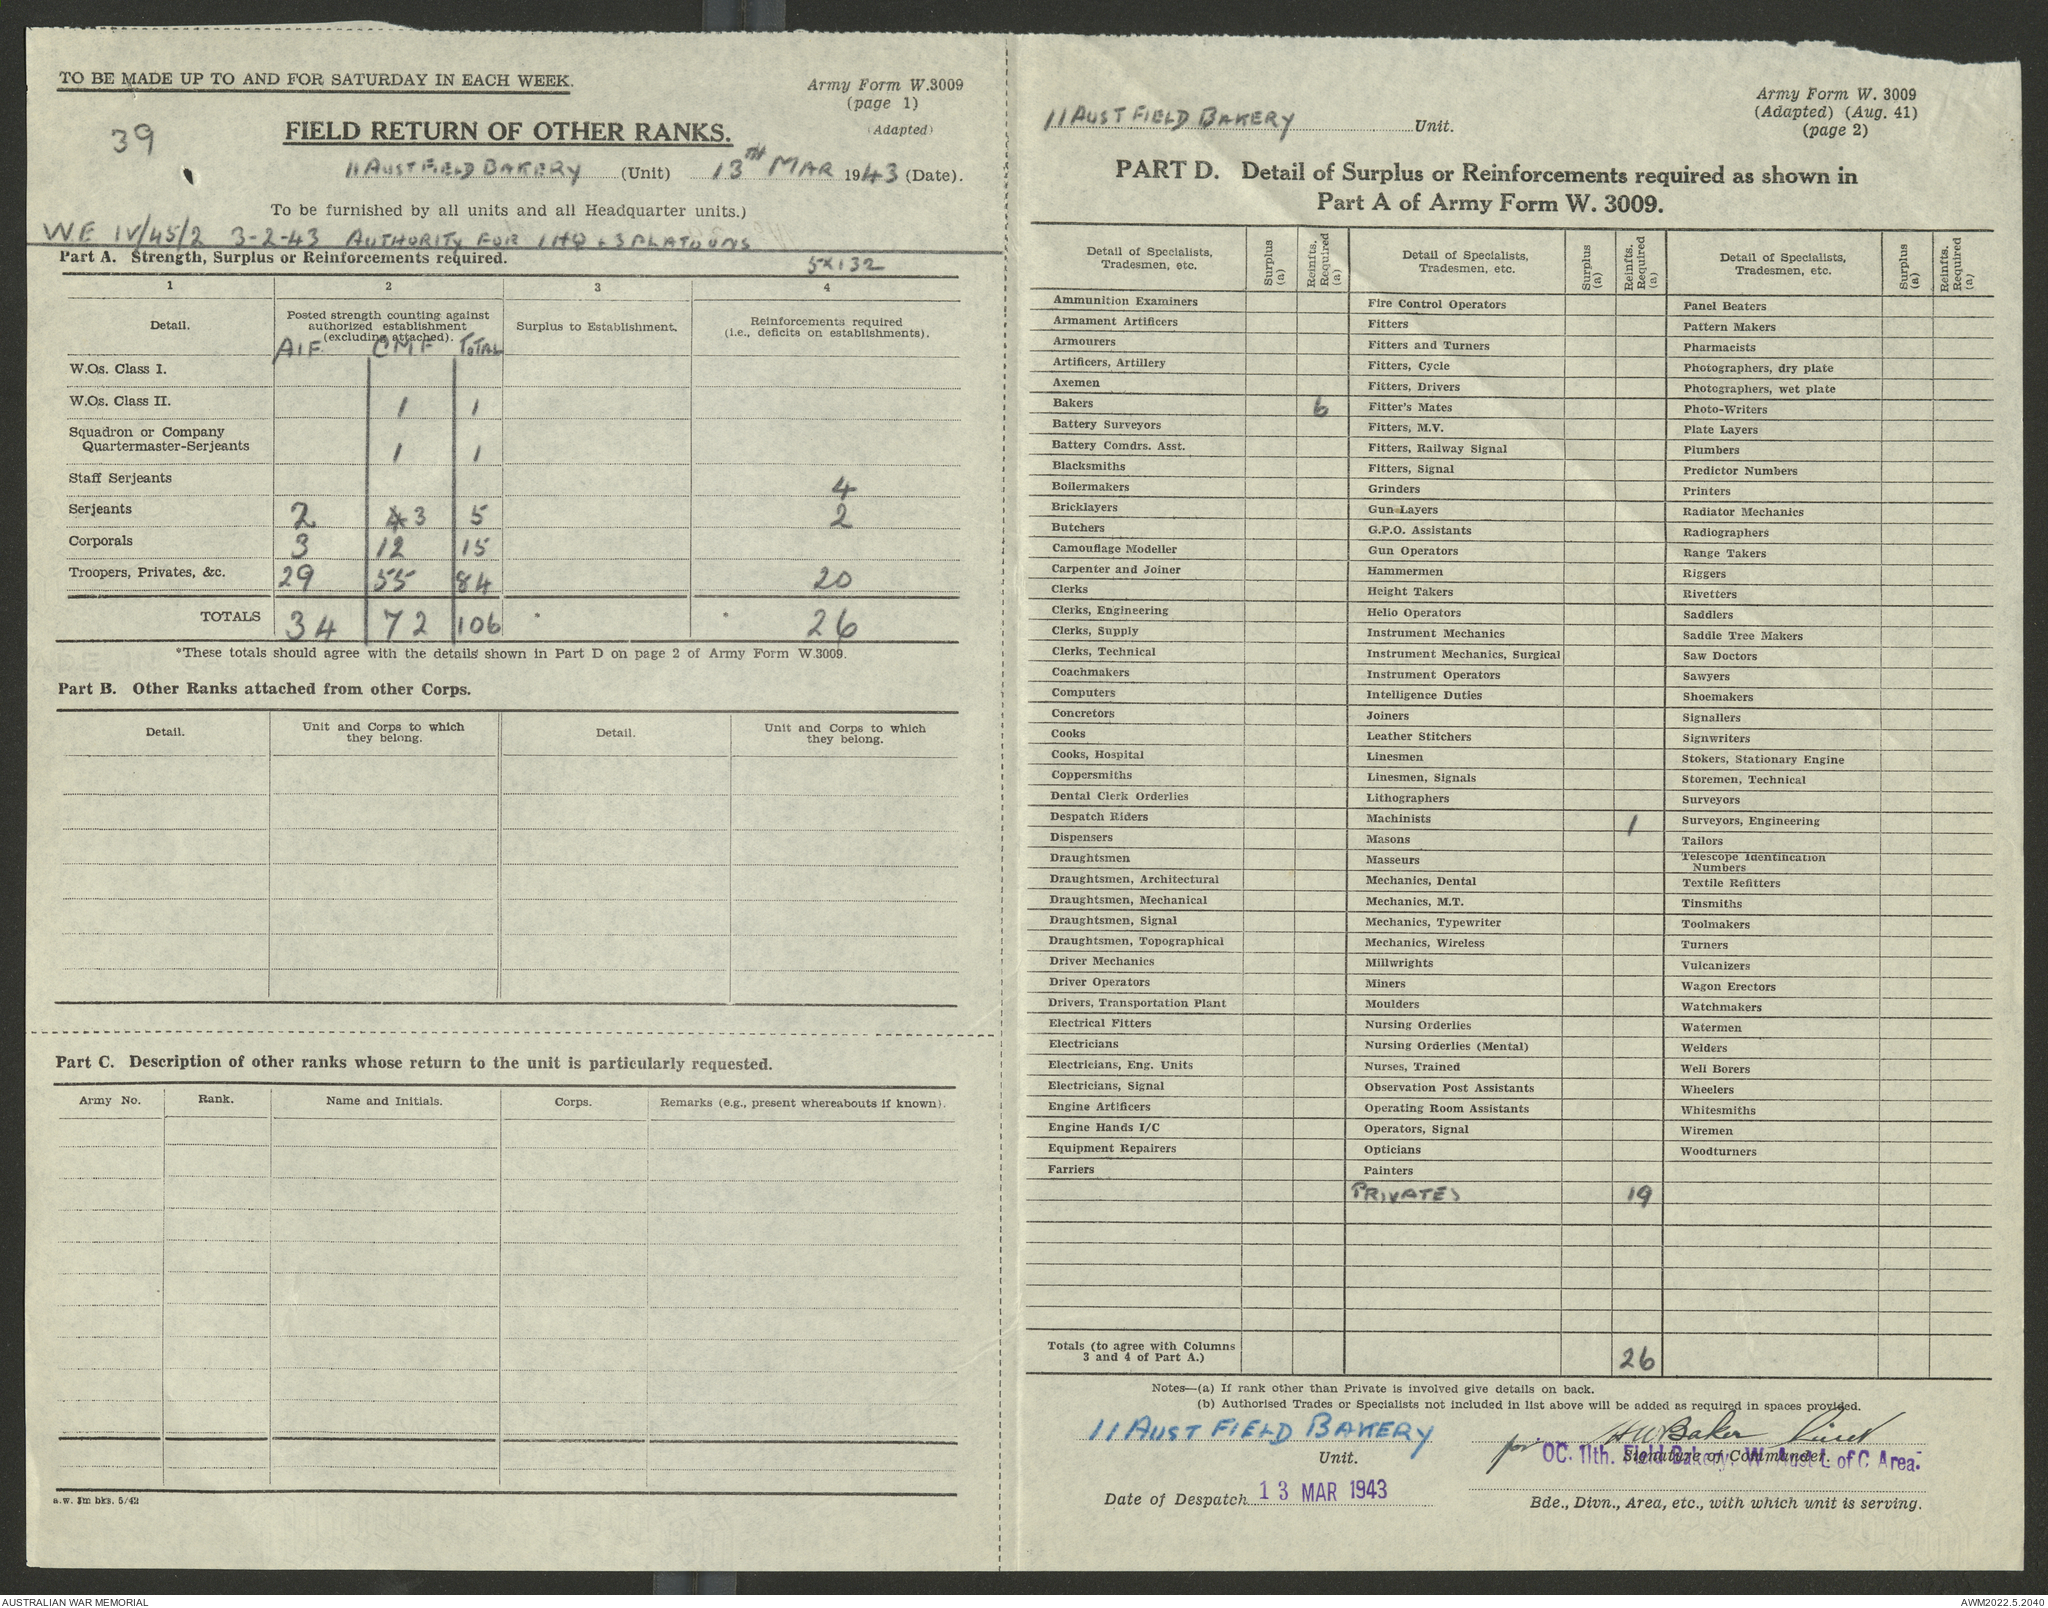 TO BE MADE UP TO AND FOR SATURDAY IN EACH WEEK.
Army Form W.3009
(page 1)
(Adapted)
39
FIELD RETURN OF OTHER RANKS.
11 AUST FIELD BAKERY (Unit) 13TH MAR 1943 (Date).
To be furnished by all units and all Headquarter units.)
WE IV/45/2 3-2-43 AUTHORITY FOR 1 HQ + 3 PLATOONS
Part A. Strength, Surplus or Reinforcements required.
5 x 132
1 2 3 4
Detail. Posted strength counting against authorized establishment (excluding attached). Surplus to Establishment. Reinforcements required (i.e., deficits on establishments).
AIF CMF TOTAL
W.Os. Class I.
W.Os. Class II. 1 1
Squadron or Company
Quartermaster-Serjeants 1 1
Staff Serjeants 4
Serjeants 2 4 3 5 2
Corporals 3 12 15
Troopers, Privates, &c. 29 55 84 20
TOTALS 34 72 106 26
*These totals should agree with the details shown in Part D on page 2 of Army Form W.3009.
Part B. Other Ranks attached from other Corps.
Detail. Unit and Corps to which they belong. Detail. Unit and Corps to which they belong.
Part C. Description of other ranks whose return to the unit is particularly requested.
Army No. Rank. Name and Initials. Corps. Remarks (e.g., present whereabouts if known).
a.w. 3m bks. 5/42
Army Form W. 3009
(Adapted) (Aug. 41)
(page 2)
11 AUST FIELD BAKERY Unit.
PART D. Detail of Surplus or Reinforcements required as shown in
Part A of Army Form W. 3009.
Detail of Specialists, Tradesmen, etc. Surplus (a) Reinfts. Required (a)
Ammunition Examiners
Armament Artificers
Armourers
Artificers, Artillery
Axemen
Bakers 6
Battery Surveyors
Battery Comdrs. Asst.
Blacksmiths
Boilermakers
Bricklayers
Butchers
Camouflage Modeller
Carpenter and Joiner
Clerks
Clerks, Engineering
Clerks, Supply
Clerks, Technical
Coachmakers
Computers
Concretors
Cooks
Cooks, Hospital
Coppersmiths
Dental Clerk Orderlies
Despatch Riders
Dispensers
Draughtsmen
Draughtsmen, Architectural
Draughtsmen, Mechanical
Draughtsmen, Signal
Draughtsmen, Topographical
Driver Mechanics
Driver Operators
Drivers, Transportation Plant
Electrical Fitters
Electricians
Electricians, Eng. Units
Electricians, Signal
Engine Artificers
Engine Hands I/C
Equipment Repairers
Farriers
Detail of Specialists, Tradesmen, etc. Surplus (a) Reinfts. Required (a)
Fire Control Operators
Fitters
Fitters and Turners
Fitters, Cycle
Fitters, Drivers
Fitter's Mates
Fitters, M.V.
Fitters, Railway Signal
Fitters, Signal
Grinders
Gun Layers
G.P.O. Assistants
Gun Operators
Hammermen
Height Takers
Helio Operators
Instrument Mechanics
Instrument Mechanics, Surgical
Instrument Operators
Intelligence Duties
Joiners
Leather Stitchers
Linesmen
Linesmen, Signals
Lithographers
Machinists 1
Masons
Masseurs
Mechanics, Dental
Mechanics, M.T.
Mechanics, Typewriter
Mechanics, Wireless
Millwrights
Miners
Moulders
Nursing Orderlies
Nursing Orderlies (Mental)
Nurses, Trained
Observation Post Assistants
Operating Room Assistants
Operators, Signal
Opticians
Painters
PRIVATES 19
Detail of Specialists, Tradesmen, etc. Surplus (a) Reinfts. Required (a)
Panel Beaters
Pattern Makers
Pharmacists
Photographers, dry plate
Photographers, wet plate
Photo-Writers
Plate Layers
Plumbers
Predictor Numbers
Printers
Radiator Mechanics
Radiographers
Range Takers
Riggers
Rivetters
Saddlers
Saddle Tree Makers
Saw Doctors
Sawyers
Shoemakers
Signallers
Signwriters
Stokers, Stationary Engine
Storemen, Technical
Surveyors
Surveyors, Engineering
Tailors
Telescope Identification
Numbers
Textile Refitters
Tinsmiths
Toolmakers
Turners
Vulcanizers
Wagon Erectors
Watchmakers
Watermen
Welders
Well Borers
Wheelers
Whitesmiths
Wiremen
Woodturners
Totals (to agree with Columns
3 and 4 of Part A.) 26
Notes—(a) If rank other than Private is involved give details on back.
(b) Authorised Trades or Specialists not included in list above will be added as required in spaces provided.
11 AUST FIELD BAKERY
Unit.
for HWBaker Lieut
OC. 11th. Field Bakery. W. Aust L of C Area.
Signature of Commander.
Date of Despatch 13 MAR 1943
Bde., Divn., Area, etc., with which unit is serving.
AUSTRALIAN WAR MEMORIAL
AWM2022.5.2040